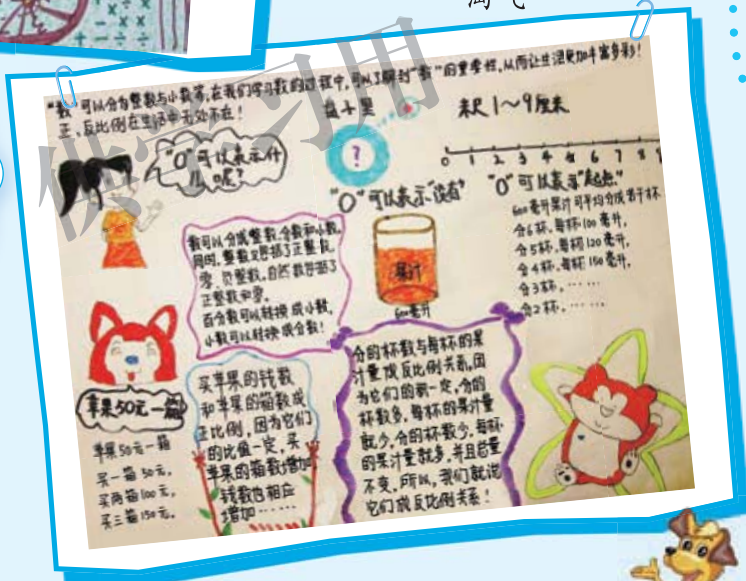 淘气
"数"可以分为整数与小数等,在我们学习数的过程中,可以了解到"数"的重要性,从而让生活更加丰富多彩!
正、反比例在生活中无处不在!
"0"可以表示什
么呢?
盘子里
?
"0"可以表示"没有"
米尺1~9厘米
0 1 2 3 4 5 6 7 8
"0"可以表示"起点"
600毫升果汁可平均分成若干杯
分6杯,每杯100毫升,
分5杯,每杯120毫升,
分4杯,每杯150毫升,
分3杯,……
分2杯,……
数可以分成整数,分数和小数,
同时,整数又包括了正整数,
零,负整数,自然数包括了
正整数和零。
百分数可以转换成小数,
小数可以转换成分数!
果汁
600毫升
苹果50元一箱
苹果50元一箱
买一箱50元,
买两箱100元,
买三箱150元。
买苹果的钱数
和苹果的箱数成
正比例,因为它们
的比值一定,买
苹果的箱数增加
钱数也相应
增加……
分的杯数与每杯的果
汁量成反比例关系,因
为它们的积一定,分的
杯数多,每杯的果汁量
就少,分的杯数少,每杯
的果汁量就多,并且总量
不变,所以,我们就说
它们成反比例关系!
供学习用